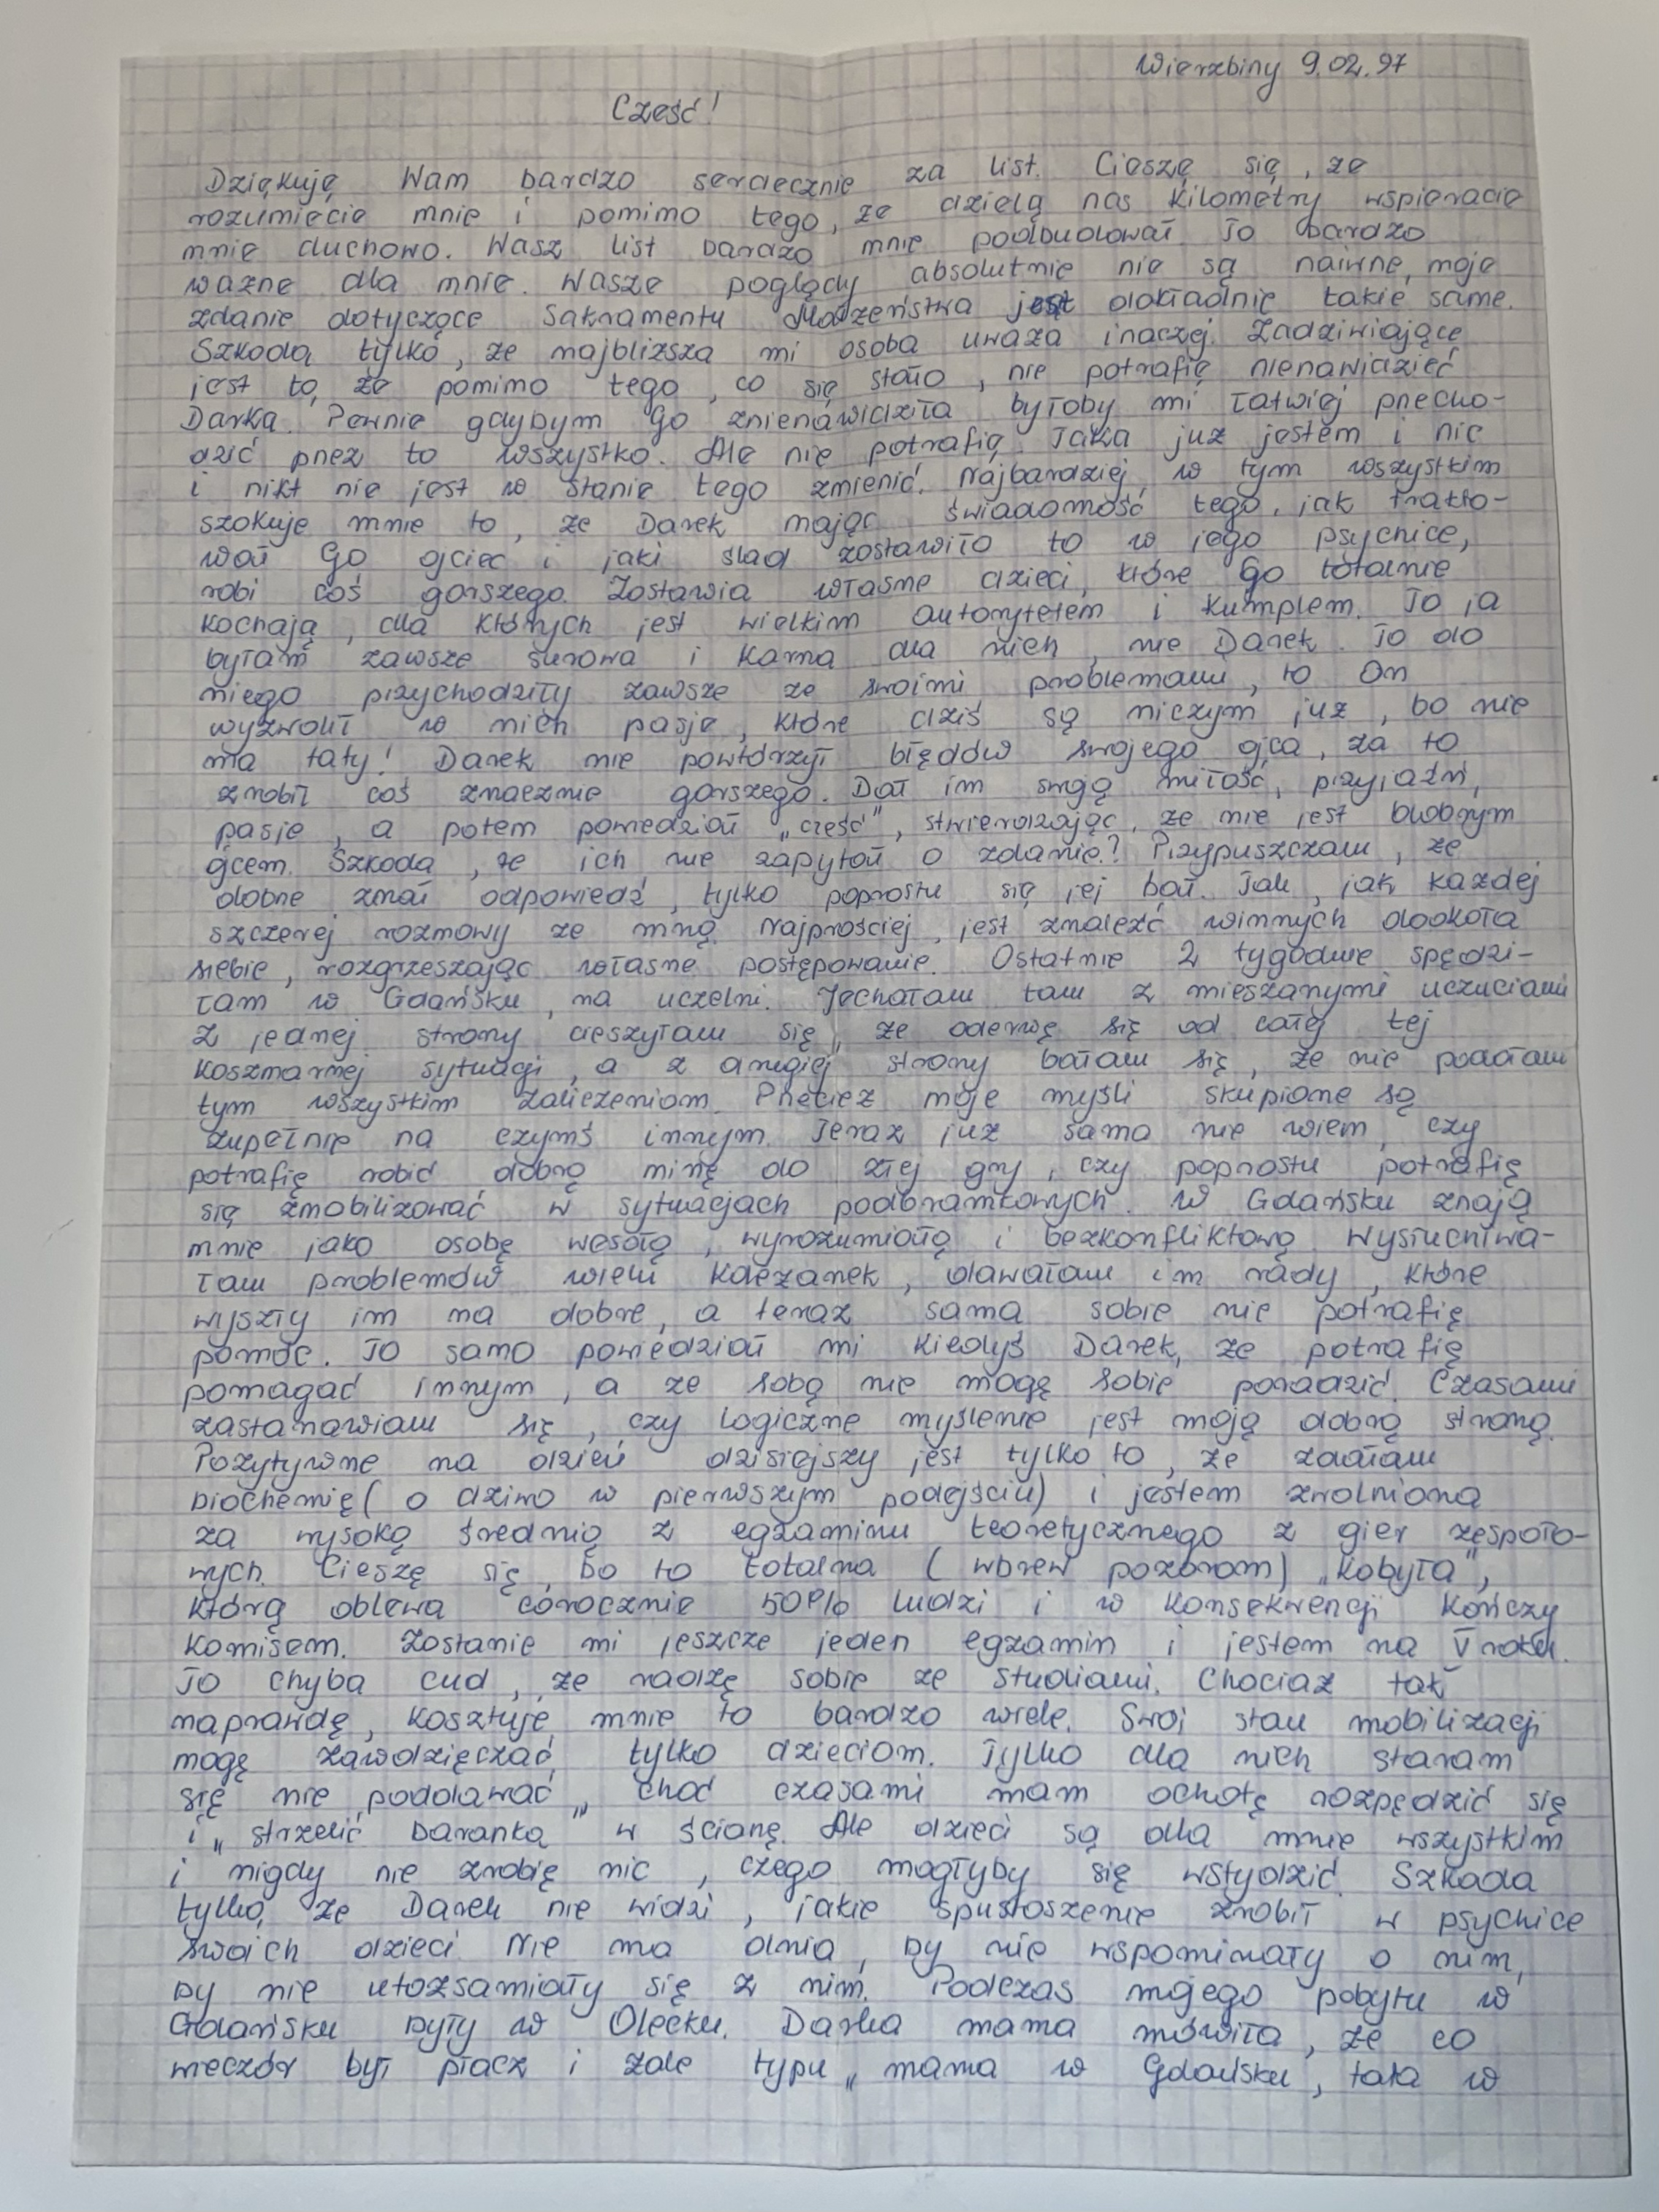 Wierzbiny 9.02.97
Cześć!
Dziękuję Wam bardzo serdecznie za list. Cieszę się, że
rozumiecie mnie i pomimo tego, że dzielą nas kilometry wspieracie
mnie duchowo. Wasz list bardzo mnie podbudował. To bardzo
ważne dla mnie. Wasze poglądy absolutnie nie są naiwne, moje
zdanie dotyczące Sakramentu Małżeństwa jest dokładnie takie same.
Szkoda tylko, że najbliższa mi osoba uważa inaczej. Zadziwiające
jest to, że pomimo tego, co się stało, nie potrafię nienawidzieć
Darka. Pewnie gdybym Go znienawidziła byłoby mi łatwiej przecho-
dzić przez to wszystko. Ale nie potrafię. Taka już jestem i nic
i nikt nie jest w stanie tego zmienić. Najbardziej w tym wszystkim
szokuje mnie to, że Darek mając świadomość tego, jak trakto-
wał Go ojciec i jaki ślad zostawiło to w jego psychice,
robi coś gorszego. Zostawia własne dzieci, które Go totalnie
kochają, dla których jest wielkim autorytetem i kumplem. To ja
byłam zawsze surowa i karna dla nich, nie Darek. To do
niego przychodziły zawsze ze swoimi problemami, to On
wyzwolił w nich pasje, które dziś są niczym już, bo nie
ma taty! Darek nie powtórzył błędów swojego ojca, za to
zrobił coś znacznie gorszego. Dał im swoją miłość, przyjaźń,
pasje, a potem powiedział „cześć", stwierdzając, że nie jest dobrym
ojcem. Szkoda, że ich nie zapytał o zdanie? Przypuszczam, że
dobrze znał odpowiedź, tylko poprostu się jej bał. Tak, jak każdej
szczerej rozmowy ze mną. Najprościej jest znaleźć winnych dookoła
siebie, rozgrzeszając własne postępowanie. Ostatnie 2 tygodnie spędzi-
łam w Gdańsku, na uczelni. Jechałam tam z mieszanymi uczuciami
z jednej strony cieszyłam się, że oderwę się od całej tej
koszmarnej sytuacji, a z drugiej strony bałam się, że nie podołam
tym wszystkim zaliczeniom. Przecież moje myśli skupione są
zupełnie na czymś innym. Teraz już sama nie wiem, czy
potrafię robić dobrą minę do złej gry, czy poprostu potrafię
się zmobilizować w sytuacjach podbramkowych. W Gdańsku znają
mnie jako osobę wesołą, wyrozumiałą i bezkonfliktową. Wysłuchiwa-
łam problemów wielu koleżanek, dawałam im rady, które
wyszły im na dobre, a teraz sama sobie nie potrafię
pomóc. To samo powiedział mi kiedyś Darek, że potrafię
pomagać innym, a ze sobą nie mogę sobie poradzić. Czasami
zastanawiam się, czy logiczne myślenie jest moją dobrą stroną.
Pozytywne na dzień dzisiejszy jest tylko to, że zdałam
biochemię (o dziwo w pierwszym podejściu) i jestem zwolniona
za wysoką średnią z egzaminu teoretycznego z gier zespoło-
wych. Cieszę się, bo to totalna (wbrew pozorom) „kobyła",
którą oblewa corocznie 50% ludzi i w konsekwencji kończy
komisem. Zostanie mi jeszcze jeden egzamin i jestem na V roku.
To chyba cud, że radzę sobie ze studiami. Chociaż tak
naprawdę, kosztuje mnie to bardzo wiele. Swój stan mobilizacji
mogę zawdzięczać tylko dzieciom. Tylko dla nich staram
się nie poddawać, choć czasami mam ochotę rozpędzić się
i „strzelić baranka" w ścianę. Ale dzieci są dla mnie wszystkim
i nigdy nie zrobię nic, czego mogłyby się wstydzić. Szkoda
tylko, że Darek nie widzi, jakie spustoszenie zrobił w psychice
swoich dzieci. Nie ma dnia, by nie wspominały o nim,
by nie utożsamiały się z nim. Podczas mojego pobytu w
Gdańsku były w Olecku. Darka mama mówiła, że co
wieczór był płacz i żale typu „mama w Gdańsku, tata w